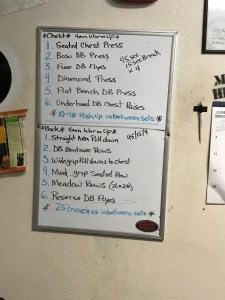 *Chest* 4am Warm Up*
1. Seated Chest Press
2. Bosu DB Press
3. Floor DB Flyes
4. Diamond Press
5. Flat Bench DB Press
6. Underhand DB Chest Raises
45 sec
15 sec Break
x 4
* 10-15 Push Up inbetween sets *
*Back* 4am Warm Up*
1. Straight Arm Pull down
2. DB Bentover Rows
3. Wide grip Pull downs to chest
4. Med. grip Seated Row
5. Meadow Rows
6. Reverse DB Flyes
* 25 crunches inbetween sets *